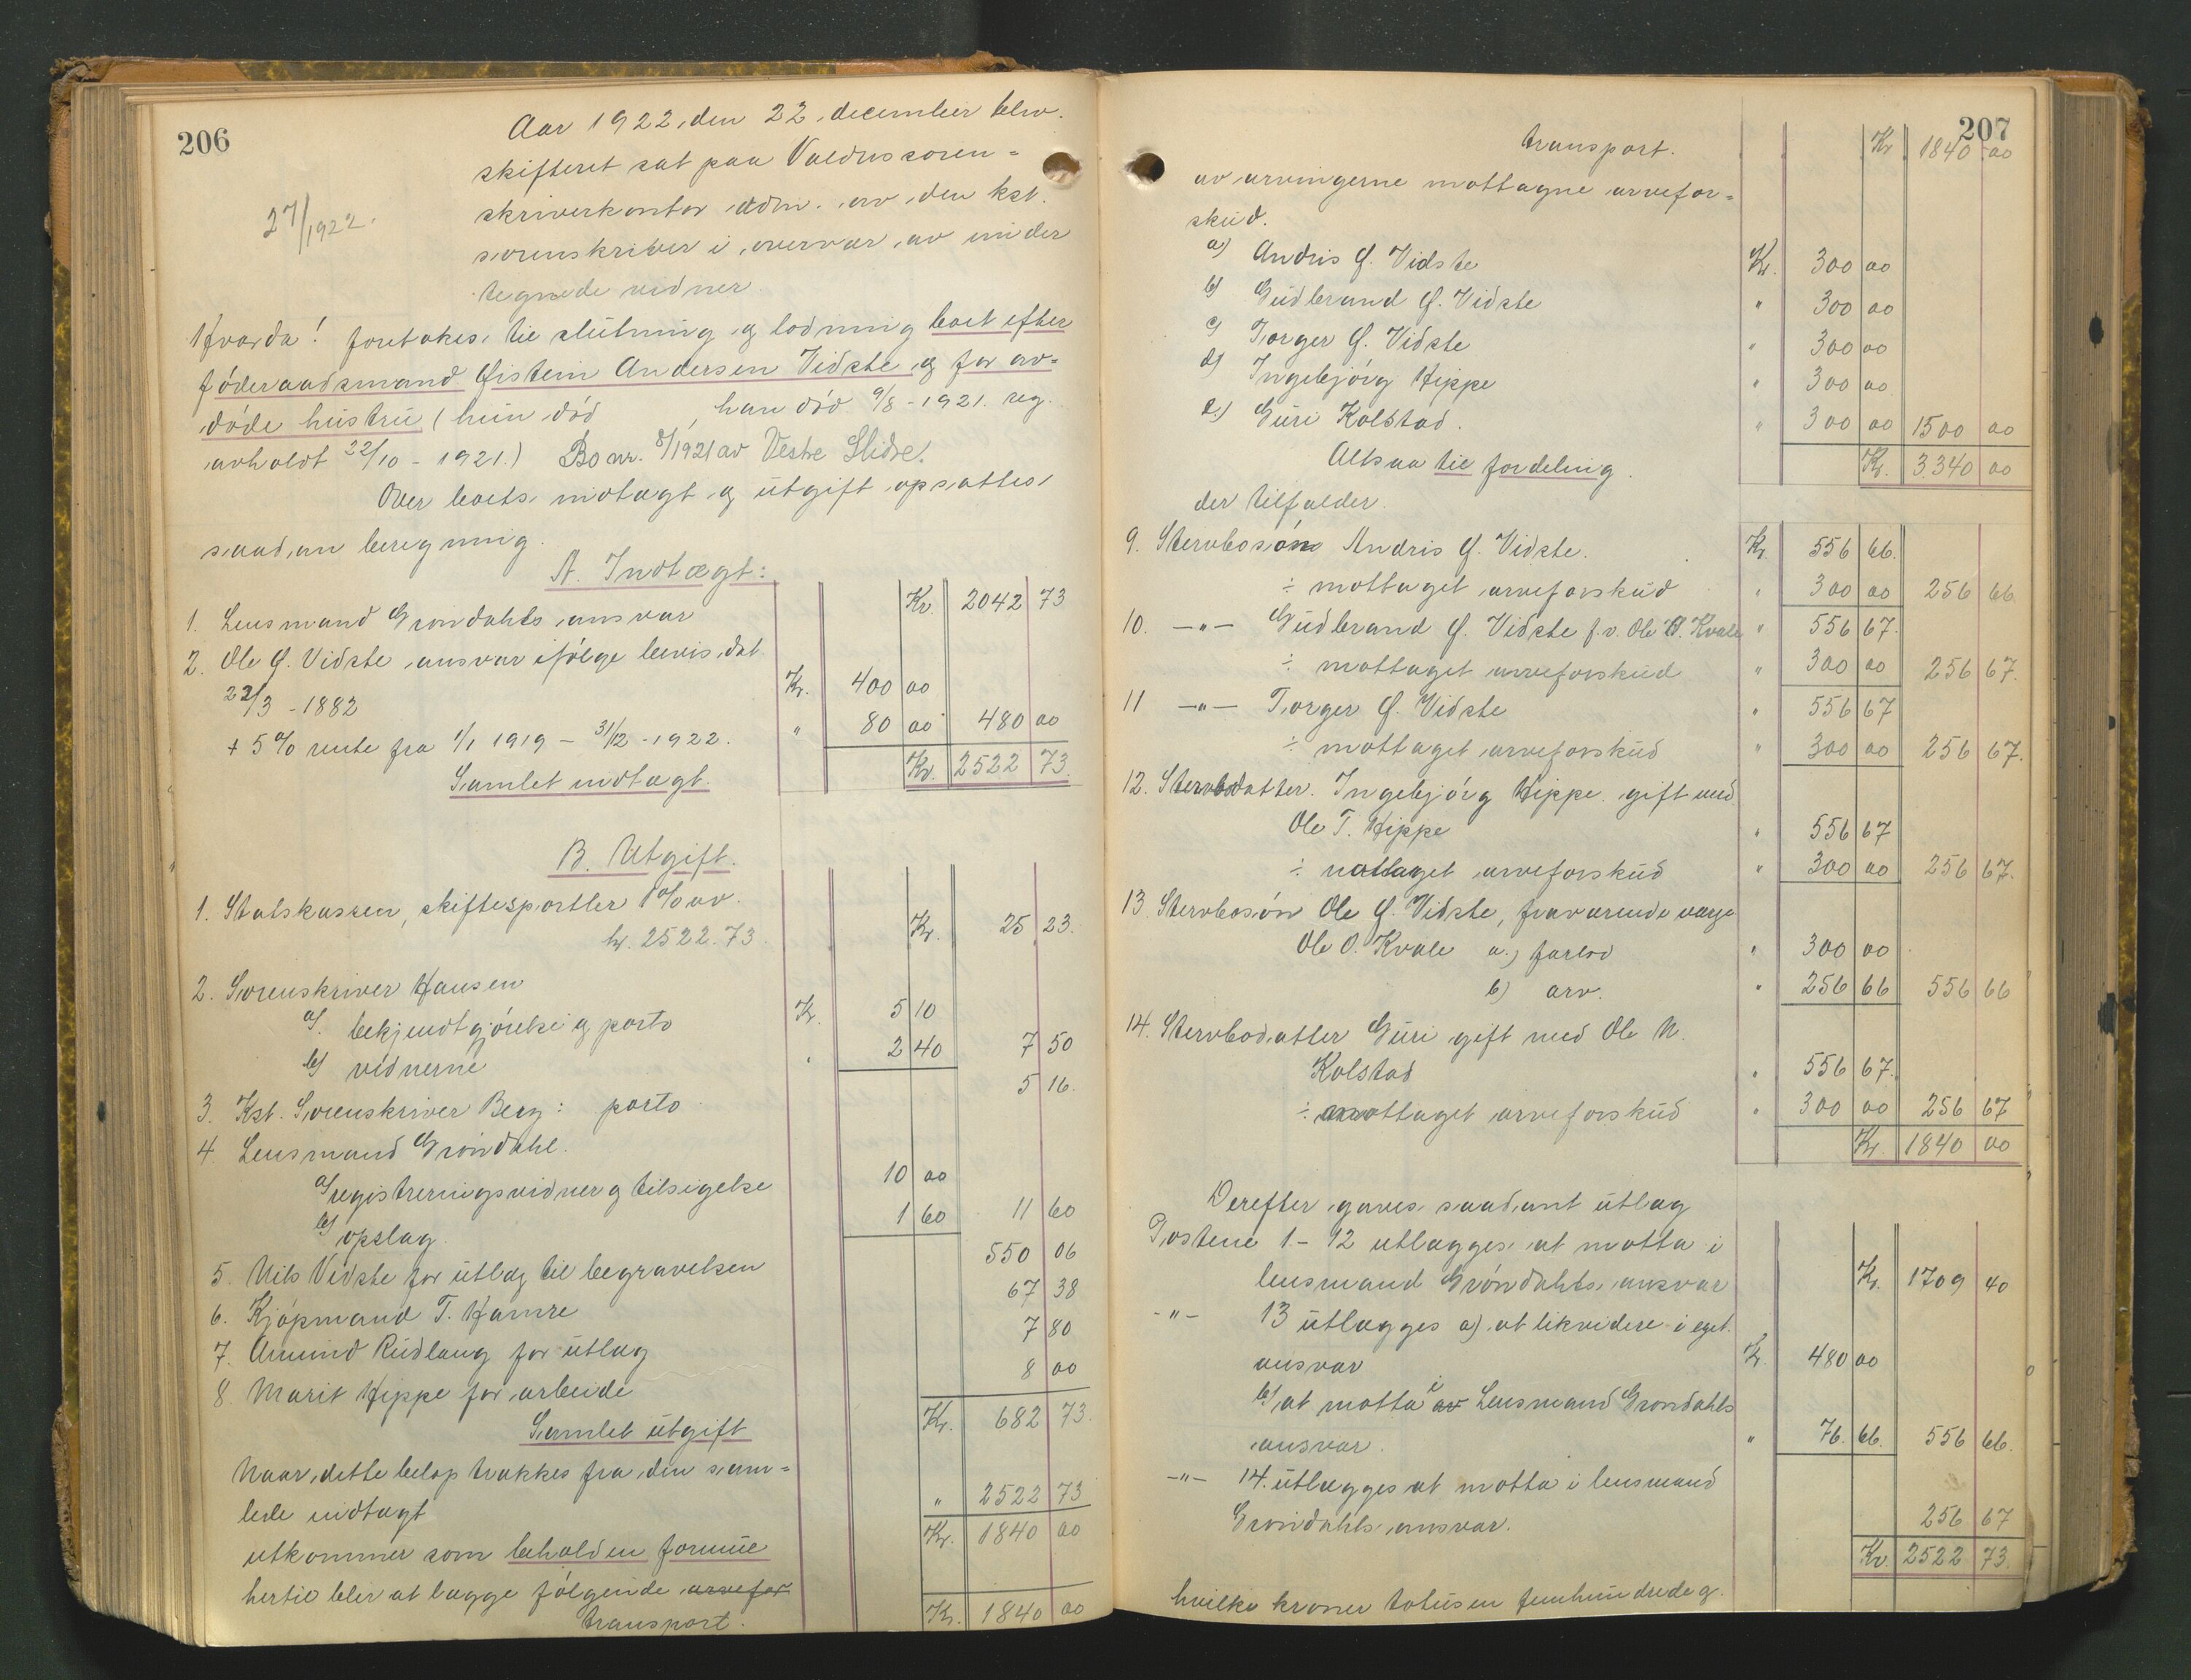 206
27/1922.
Aar 1922, den 22 december blev
skifteret sat paa Valdres soren=
skriverkontor adm. av den kst.
sorenskriver i overvær av under
tegnede vidner.
Hvorda! foretokes til slutning og lodning boet efter
föderaadsmand Østein Andersen Vidste og for av=
döde hustru (hun död , han död 9/8 - 1921. reg.
avholdt 22/10 - 1921.) Bo nr. 8/1921 av Vestre Slidre.
Over boets indtægt og utgift opsattes
saadan beregning.
A. Indtægt:
1. Lensmand Grøndahls ansvar Kr. 2042 73
2. Ole Ø. Vidste ansvar ifölge bevis dat.
22/3 - 1882 Kr. 400 00
+ 5% rente fra 1/1 1919 - 31/12 - 1922. " 80 00 480 00
Samlet indtægt. Kr. 2522 73.
B. Utgift.
1. Statskassen, skiftesportler 1% av.
kr. 2522.73. Kr. 25 23.
2. Sorenskriver Hansen
a/. bekjendtgjörelse og porto Kr. 5 10
b) vidnerne " 2 40 7 50
3. Kst. Sorenskriver Berg: porto 5 16.
4. Lensmand Gröndahl.
a) registreringsvidner og tilsigelse 10 00
b) opslag. 1 60 11 60
5. Nils Vidste for utlæg til begravelsen 550 06
6. Kjöpmand T. Hamre 67 38
7. Amund Rudlang for utlæg 7 80
8. Marit Hippe for arbeide 8 00
Samlet utgift Kr. 682 73.
Naar dette belöp trækkes fra den sam=
lede indtægt " 2522 73
utkommer som beholden formue Kr. 1840 00
hertil blir at lægge fölgende arvefor
transport. Kr. 1840 00
207
transport. Kr. 1840 00
av arvingerne mottagne arvefor=
skud.
a) Andris Ø. Vidste Kr. 300 00
b) Gudbrand Ø. Vidste " 300 00
c) Torger Ø. Vidste " 300 00
d) Ingebjörg Hippe " 300 00
e.) Guri Kolstad. " 300 00 1500 00
Altsaa til fordeling. Kr. 3340 00
der tilfalder.
9. Stervbosön Andris Ø. Vidste. Kr. 556 66.
÷ mottaget arveforskud " 300 00 256 66
10. —"— Gudbrand Ø. Vidste f.v. Ole O. Kvale " 556 67.
÷ mottaget arveforskud " 300 00 256 67.
11 —"— Torger Ø. Vidste " 556 67
÷ mottaget arveforskud " 300 00 256 67.
12. Stervbodatter Ingebjörg Hippe gift med
Ole T. Hippe " 556 67
÷ mottaget arveforskud " 300 00 256 67.
13 Stervbosön Ole Ø. Vidste, fraværende værge
Ole O. Kvale a.) forlod " 300 00
b) arv. " 256 66 556 66
14. Stervbodatter Guri gift med Ole N.
Kolstad " 556 67.
÷ mottaget arveforskud " 300 00 256 67
Kr. 1840 00
Derefter gaves saadant utlæg
Postene 1 - 12 utlægges at motta i
lensmand Gröndahls ansvar Kr. 1709 40
-"- 13 utlægges a) at likvidere i eget
ansvar Kr. 480 00
b) at motta av i Lensmand Gröndahls
ansvar. " 76. 66. 556 66.
—"— 14. utlægges at motta i lensmand
Gröndahls ansvar. 256 67
Kr. 2522 73.
hvilke kroner totusen femhundrede og